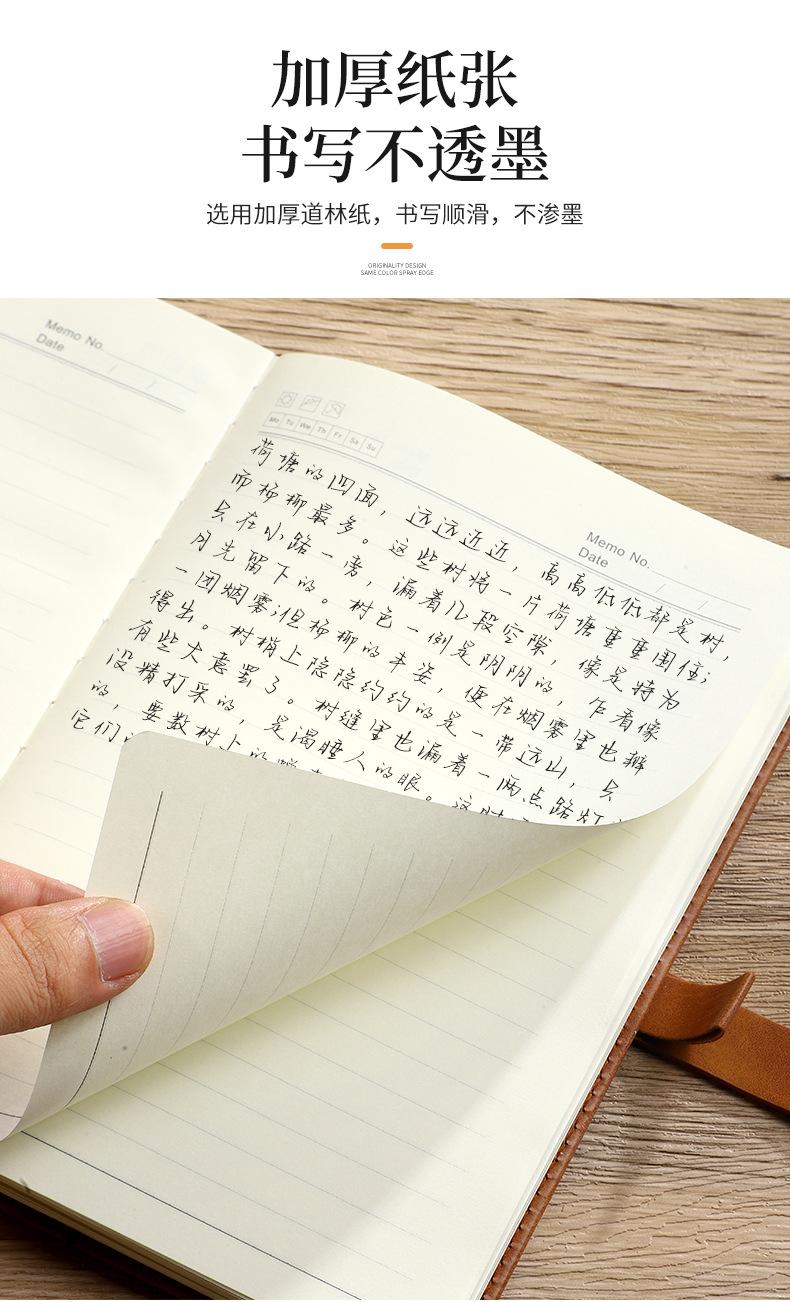 加厚纸张
书写不透墨
选用加厚道林纸，书写顺滑，不渗墨
ORIGINALITY DESIGN
SAME COLOR SPRAY EDGE
Memo No.
Date / /
Mo Tu We Th Fr Sa Su
Memo No.
Date / /
荷塘的四面，远远近近，高高低低都是树，
而杨柳最多。这些树将一片荷塘重重围住；
只在小路一旁，漏着几段空隙，像是特为
月光留下的。树色一例是阴阴的，乍看像
一团烟雾；但杨柳的丰姿，便在烟雾里也辨
得出。树梢上隐隐约约的是一带远山，只
有些大意罢了。树缝里也漏着一两点路灯
没精打采的，是渴睡人的眼。这时
的，要数树上的蝉
它们